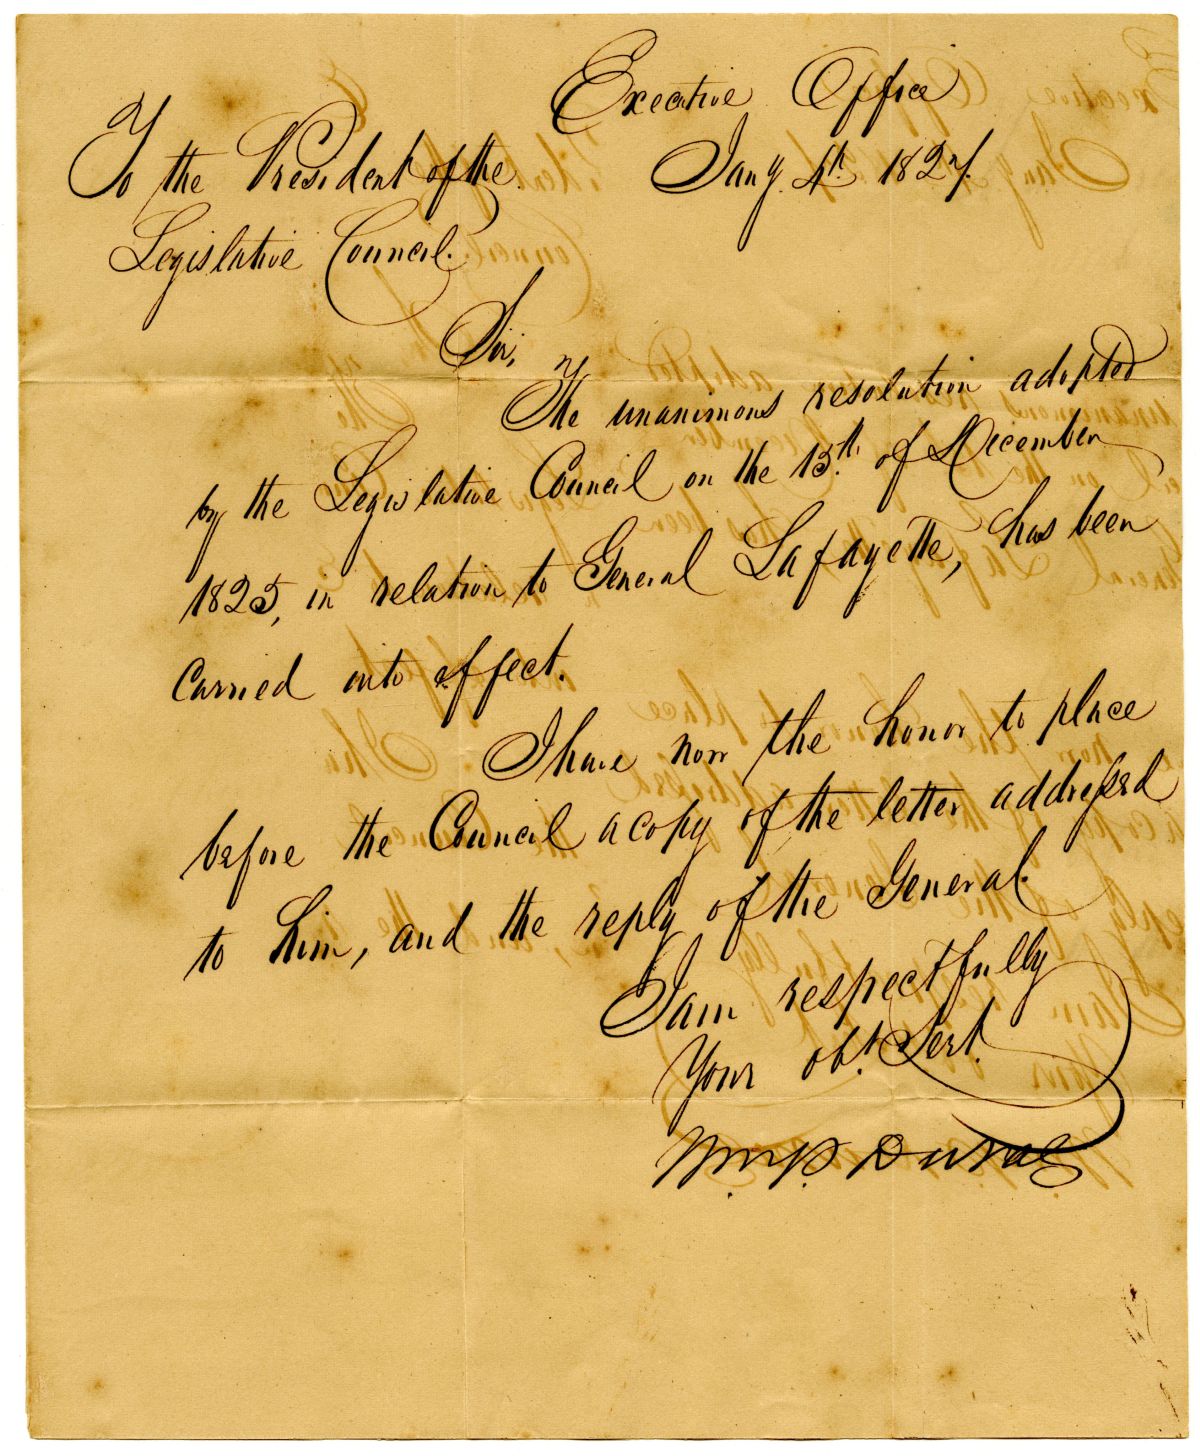 Executive Office
Jany. 4th 1827.
To the President of the
Legislative Council.
Sir,
The unanimous resolution adopted
by the Legislative Council on the 15th. of December
1825, in relation to General Lafayette, has been
carried into effect.
I have now the honor to place
before the Council a copy of the letter addressed
to him, and the reply of the General.
I am respectfully
Your obt. Sert.
Wm. P. DuVal